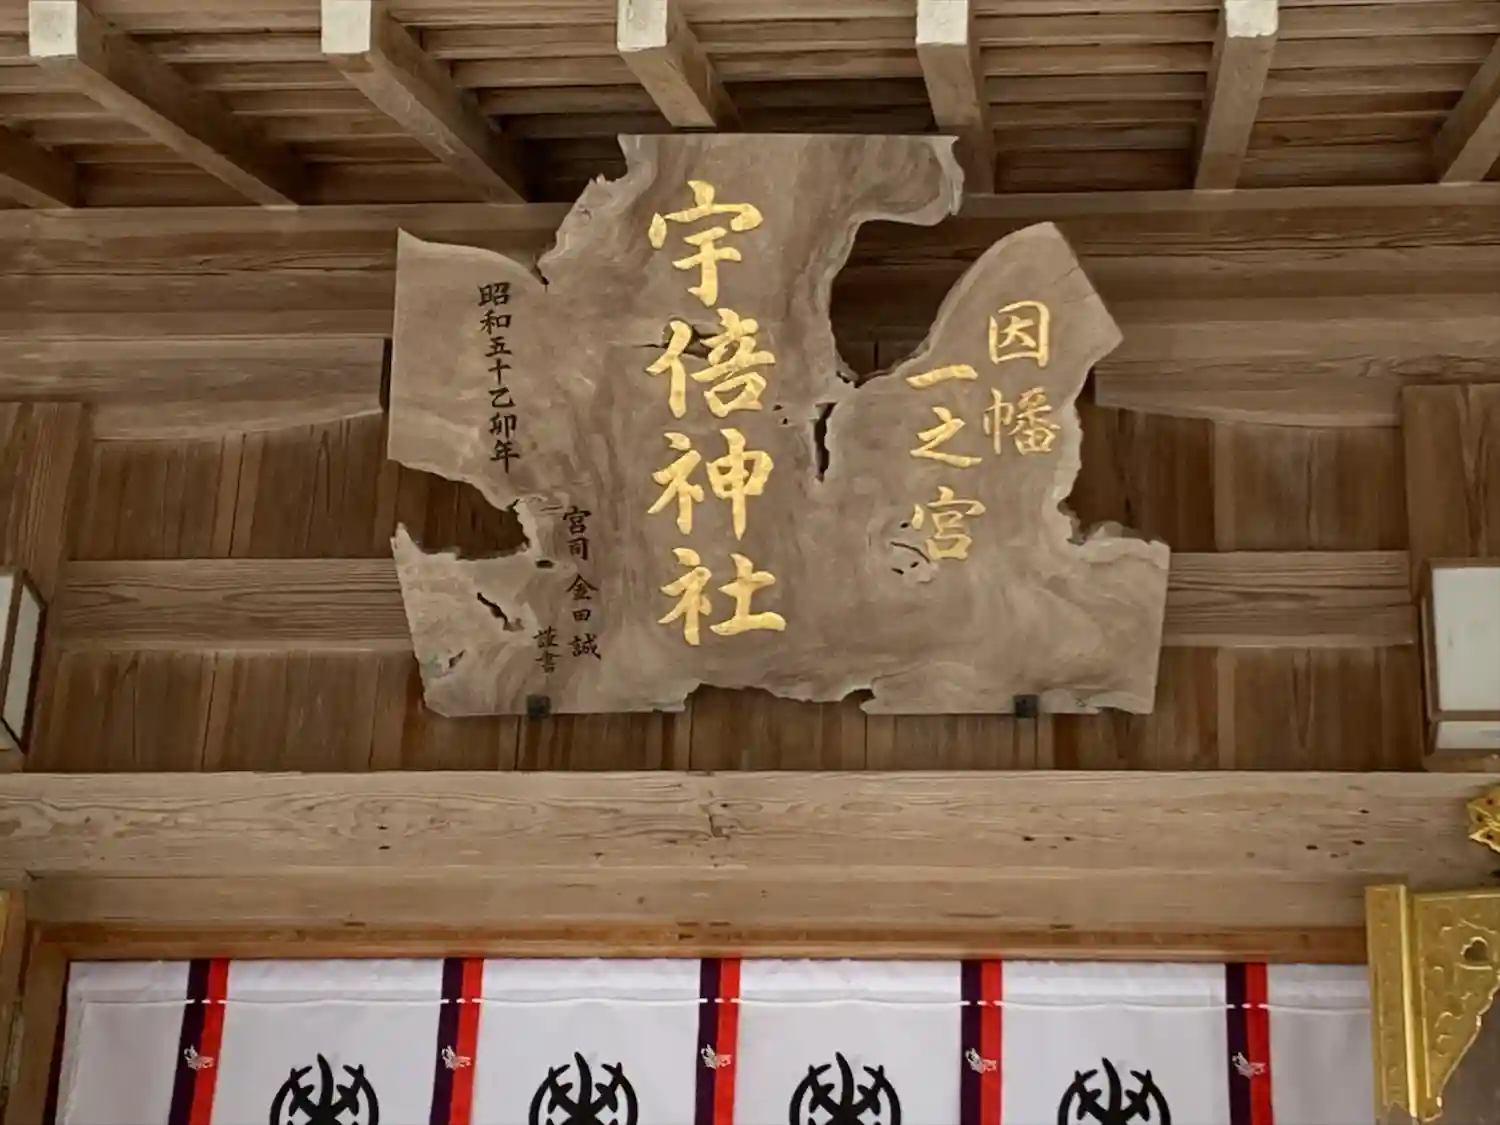 因幡
一之宮
宇倍神社
宮司 金田 誠
謹書
昭和五十乙卯年